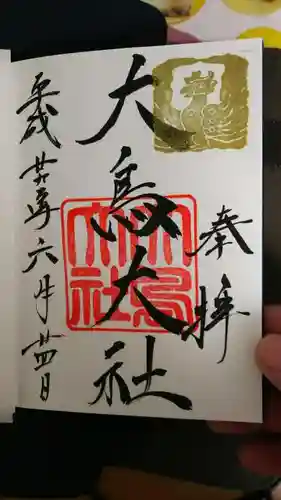 奉拝
大鳥大社
大鳥大社
平成廿八年六月廿四日